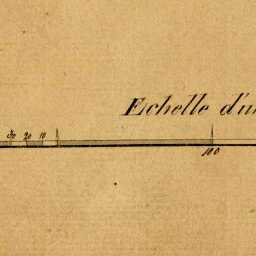 Echelle d'un
30 20 10
100